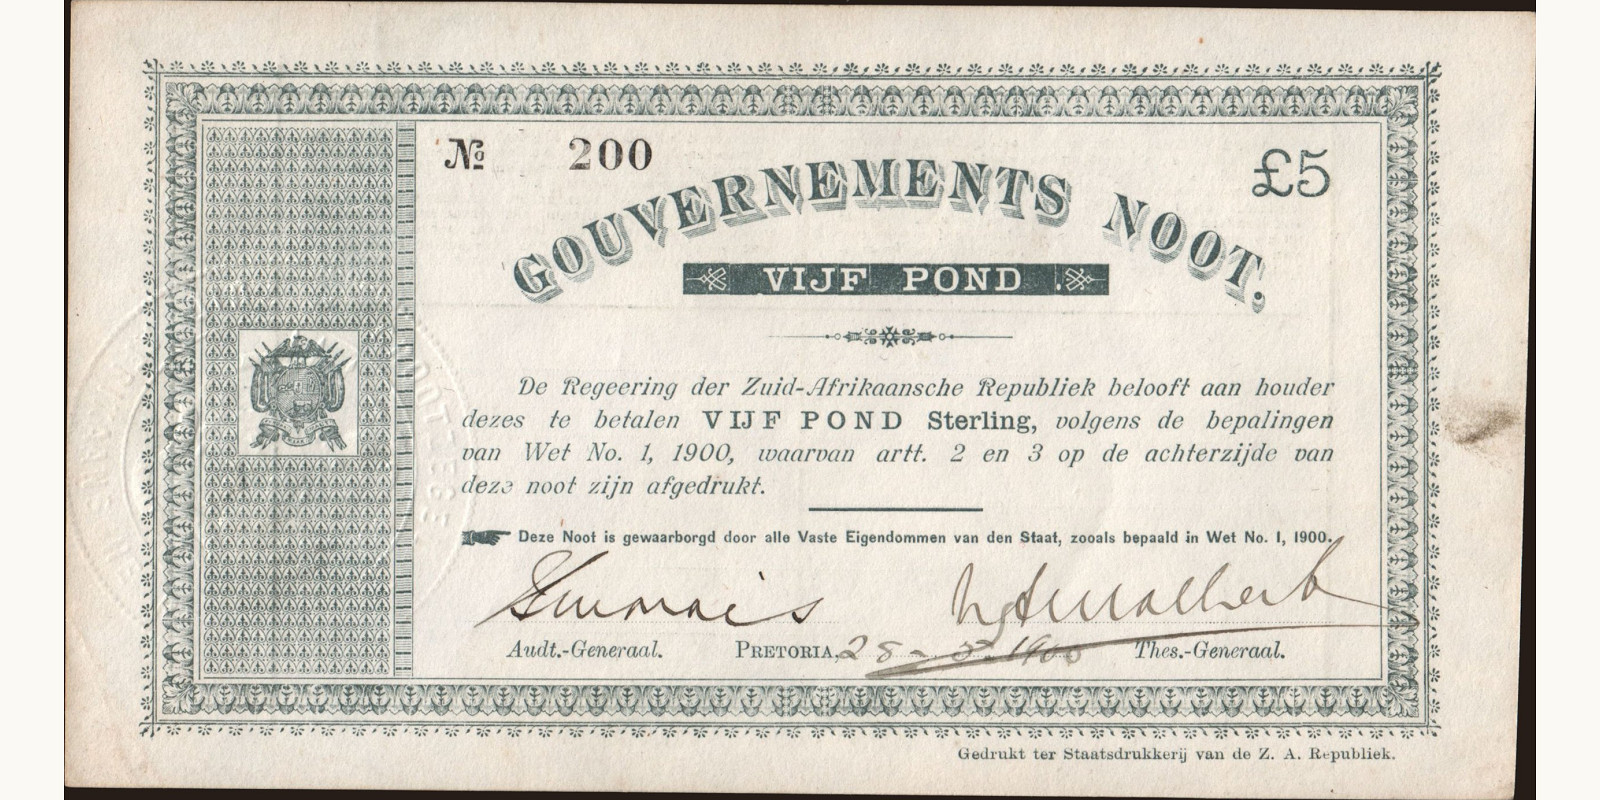 № 200
£5
GOUVERNEMENTS NOOT,
VIJF POND
De Regeering der Zuid-Afrikaansche Republiek belooft aan houder
dezes te betalen VIJF POND Sterling, volgens de bepalingen
van Wet No. 1, 1900, waarvan artt. 2 en 3 op de achterzijde van
deze noot zijn afgedrukt.
Deze Noot is gewaarborgd door alle Vaste Eigendommen van den Staat, zooals bepaald in Wet No. 1, 1900.
Audt.-Generaal. PRETORIA, 28-5-1900 Thes.-Generaal.
Gedrukt ter Staatsdrukkerij van de Z. A. Republiek.